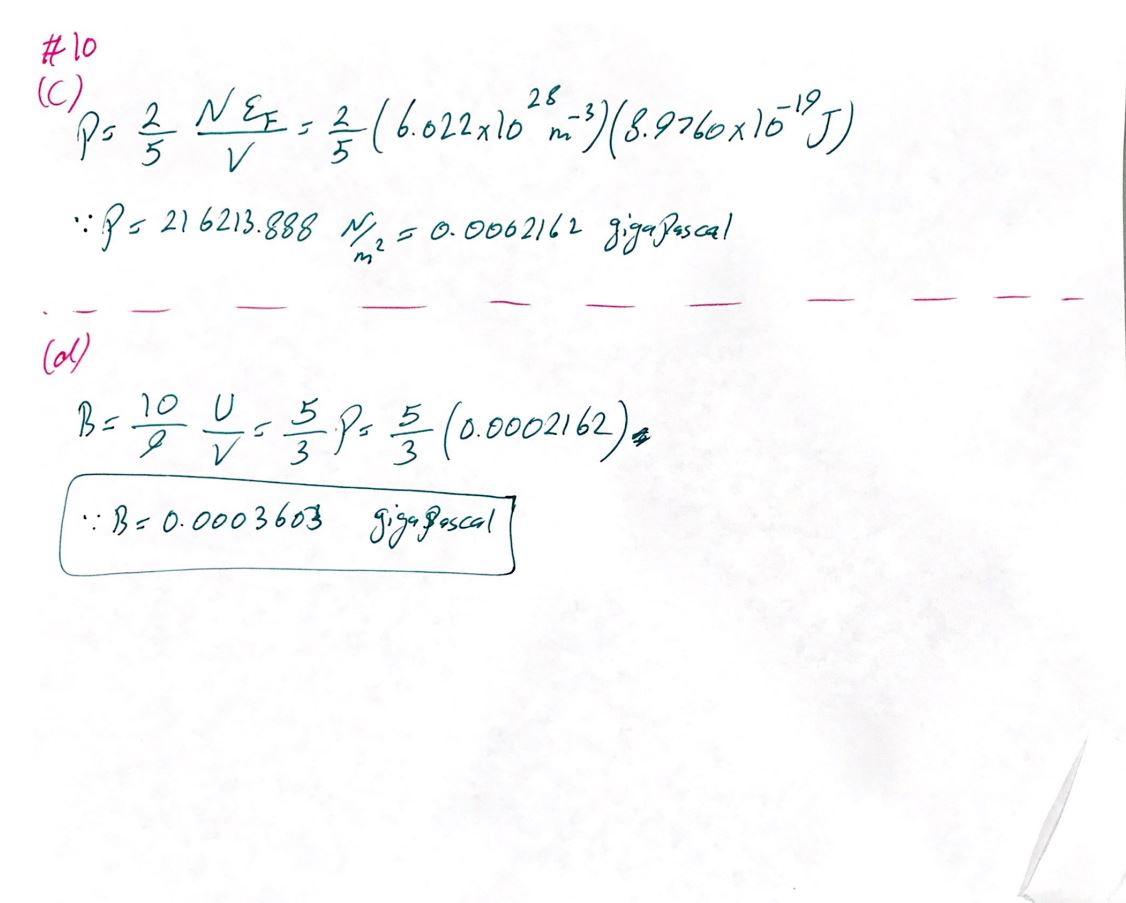 #10
(c)
P = 2/5 Nε_F/V = 2/5 (6.022×10^28 m^-3)(8.9760×10^-19 J)
∵ P = 216213.888 N/m^2 = 0.0062162 gigaPascal
(d)
B = 10/9 U/V = 5/3 P = 5/3 (0.0002162)
∵ B = 0.0003603 gigaPascal